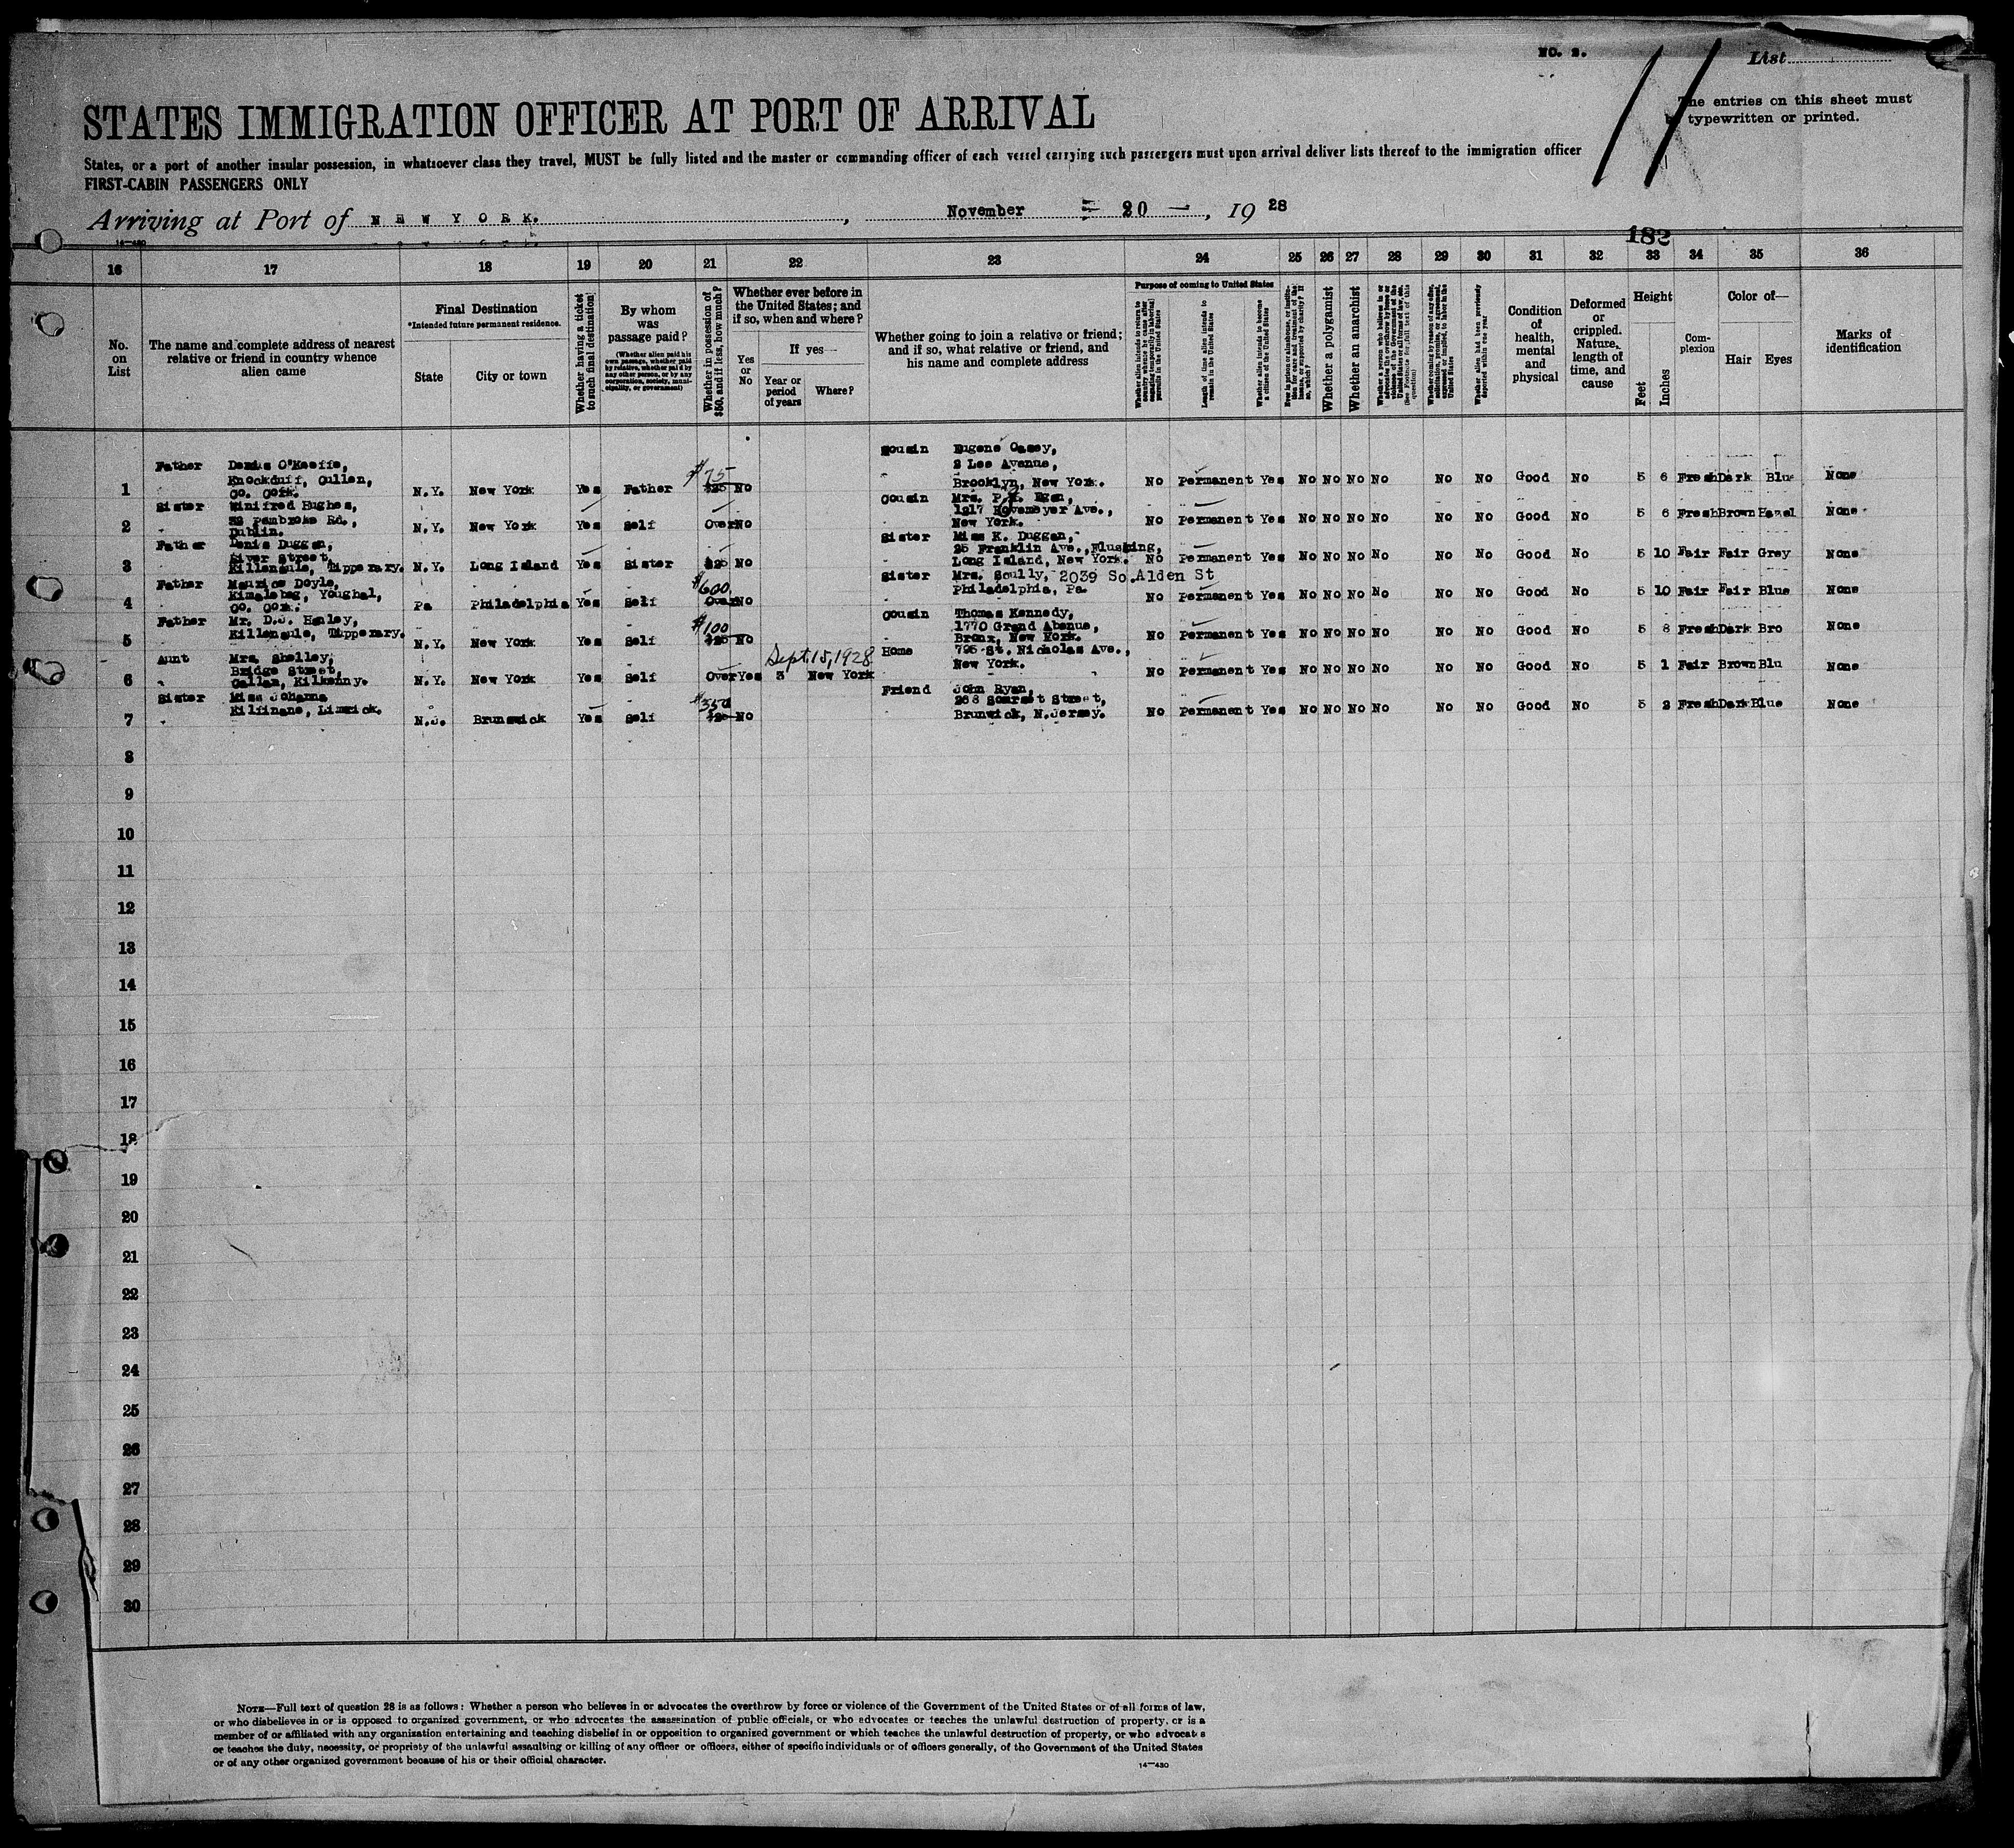 NO. 2.
11
List
STATES IMMIGRATION OFFICER AT PORT OF ARRIVAL
The entries on this sheet must
be typewritten or printed.
States, or a port of another insular possession, in whatsoever class they travel, MUST be fully listed and the master or commanding officer of each vessel carrying such passengers must upon arrival deliver lists thereof to the immigration officer
FIRST-CABIN PASSENGERS ONLY
Arriving at Port of NEW YORK. , November 20 , 19 28
14—430
182
16 17 18 19 20 21 22 23 24 25 26 27 28 29 30 31 32 33 34 35 36
No. on List
The name and complete address of nearest relative or friend in country whence alien came
Final Destination
*Intended future permanent residence.
State
City or town
Whether having a ticket to such final destination
By whom was passage paid?
(Whether alien paid his own passage, whether paid by relative, whether paid by any other person, or by any corporation, society, municipality, or government)
Whether in possession of $50, and if less, how much?
Whether ever before in the United States; and if so, when and where?
Yes or No
If yes—
Year or period of years
Where?
Whether going to join a relative or friend; and if so, what relative or friend, and his name and complete address
Purpose of coming to United States
Whether alien intends to return to country whence he came after engaging temporarily in laborial pursuits in the United States
Length of time alien intends to remain in the United States
Whether alien intends to become a citizen of the United States
Whether a polygamist
Whether an anarchist
Whether alien had been previously deported within one year
Condition of health, mental and physical
Deformed or crippled. Nature, length of time, and cause
Height
Feet
Inches
Complexion
Color of—
Hair
Eyes
Marks of identification
1 Father Denis O'Keeffe, Knockduff, Cullen, Co. Cork. N.Y. New York Yes Father $75 $25 No Cousin Eugene Casey, 2 Lee Avenue, Brooklyn, New York. No Permanent Yes No No No No No No Good No 5 6 Fresh Dark Blue None
2 Sister Winifred Hughes, 52 Pembroke Rd., Dublin. N.Y. New York Yes Self Over No Cousin Mrs. P.J. Egan, 1217 Havemeyer Ave., New York. No Permanent Yes No No No No No No Good No 5 6 Fresh Brown Hazel None
3 Father Denis Duggan, River Street, Killenaule, Tipperary. N.Y. Long Island Yes Sister $25 No Sister Miss K. Duggan, 25 Franklin Ave., Flushing, Long Island, New York. No Permanent Yes No No No No No No Good No 5 10 Fair Fair Grey None
4 Father Maurice Doyle, Youghal, Co. Cork. Pa Philadelphia Yes Self $600 Over No Sister Mrs. Scully, 2039 So. Alden St Philadelphia, Pa. No Permanent Yes No No No No No No Good No 5 10 Fair Fair Blue None
5 Father Mr. D.J. Hanley, Killenaule, Tipperary. N.Y. New York Yes Self $100 $25 No Cousin Thomas Kennedy, 1770 Grand Abenue, Bronx, New York. No Permanent Yes No No No No No No Good No 5 8 Fresh Dark Bro None
6 Aunt Mrs. Shelley, Bridge Street, Callan, Kilkenny. N.Y. New York Yes Self Over Yes Sept. 15, 1928 3 New York Home 795 St. Nicholas Ave., New York. No Permanent Yes No No No No No No Good No 5 1 Fair Brown Blu None
7 Sister Miss Johanna Kilfinane, Limrick. N.J. Brunswick Yes Self $350 $25 No Friend John Ryan, 268 Somrset Street, Brunwick, N.Jersey. No Permanent Yes No No No No No No Good No 5 2 Fresh Dark Blue None
8
9
10
11
12
13
14
15
16
17
18
19
20
21
22
23
24
25
26
27
28
29
30
NOTE—Full text of question 28 is as follows: Whether a person who believes in or advocates the overthrow by force or violence of the Government of the United States or of all forms of law,
or who disbelieves in or is opposed to organized government, or who advocates the assassination of public officials, or who advocates or teaches the unlawful destruction of property, or is a
member of or affiliated with any organization entertaining and teaching disbelief in or opposition to organized government or which teaches the unlawful destruction of property, or who advocates
or teaches the duty, necessity, or propriety of the unlawful assaulting or killing of any officer or officers, either of specific individuals or of officers generally, of the Government of the United States
or of any other organized government because of his or their official character.
14—430